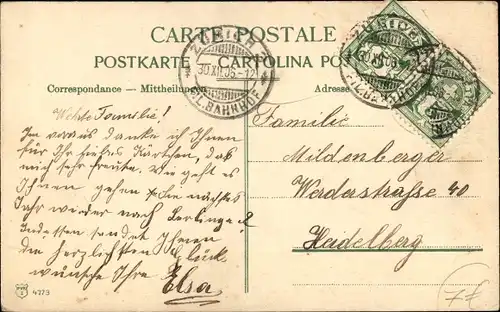 CARTE POSTALE
POSTKARTE CARTOLINA POS
Correspondance – Mittheilung
Adresse
ZÜRICH
30.XII.06.-12
FIL.BAHNHOF
Familie!
Im voraus danke ich Ihnen
für Ihr liebes Kärtchen, das
mich sehr freute. Wie geht es
Ihnen gehen Sie nächstes
Jahr wieder nach Berlingen?
Indessen sendet Ihnen
die herzlichsten Glück
wünsche Ihre Elsa
Familie
Mildenberger
Werderstraße 40
Heidelberg
4773
7£